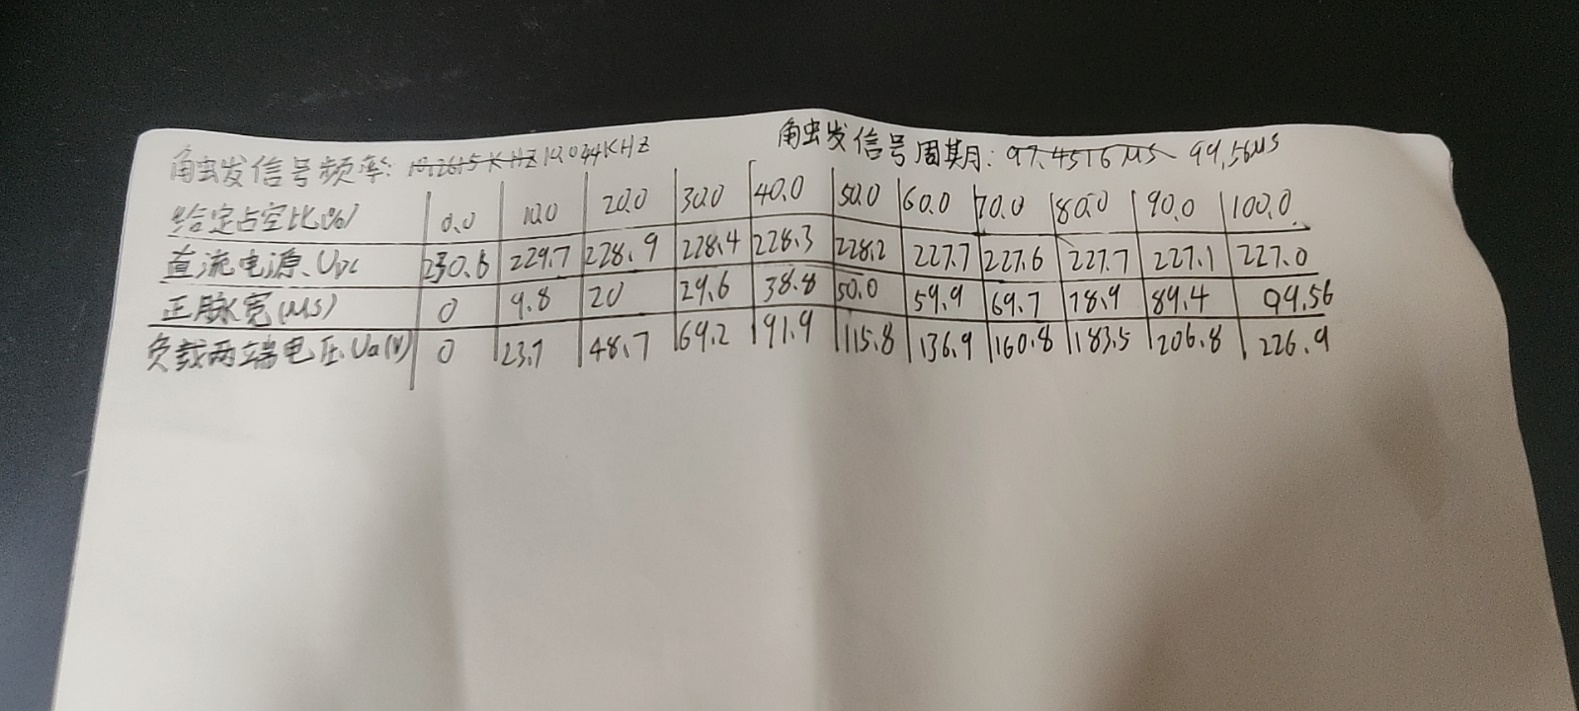 触发信号频率: 10.2615KHZ 10.044KHZ
触发信号周期: 97.4516μS 99.56μS
给定占空比(%) 0.0 10.0 20.0 30.0 40.0 50.0 60.0 70.0 80.0 90.0 100.0
直流电源、UDC 230.6 229.7 228.9 228.4 228.3 228.2 227.7 227.6 227.7 227.1 227.0
正脉宽(μS) 0 9.8 20 29.6 38.8 50.0 59.9 69.7 78.9 89.4 99.56
负载两端电压、Ua(V) 0 23.7 48.7 69.2 91.9 115.8 136.9 160.8 183.5 206.8 226.9